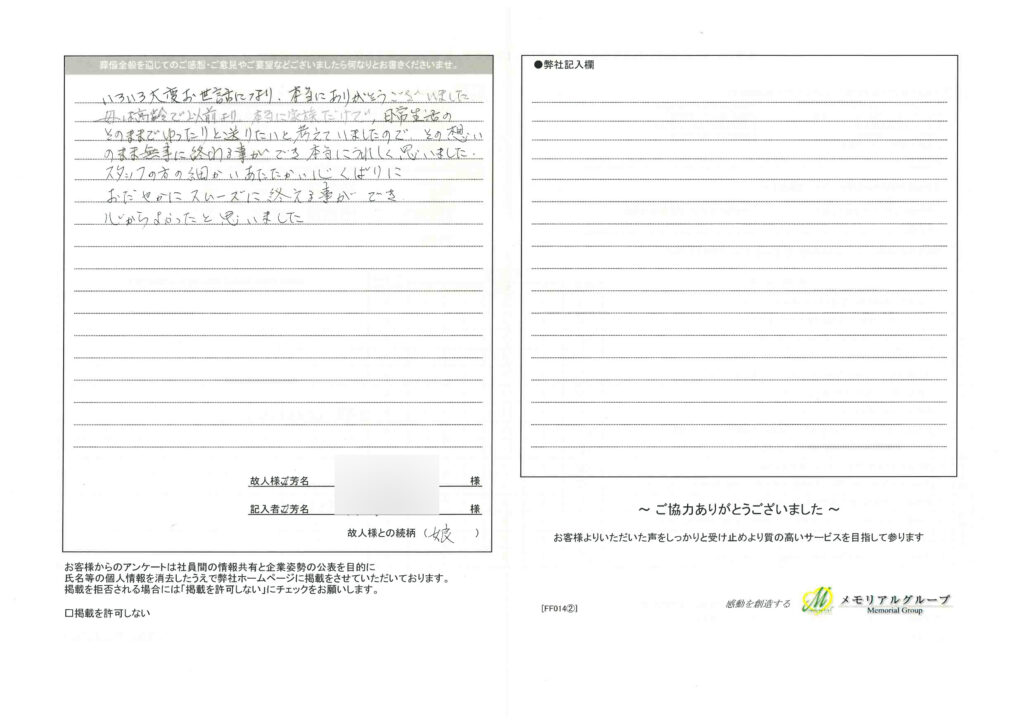 葬儀全般を通じてのご感想・ご意見やご要望などございましたら何なりとお書きくださいませ。
いろいろ大変お世話になり、本当にありがとうございました
母は高齢で以前より、本当に家族だけで、日常生活の
そのままでゆったりと送りたいと考えていましたので、その想い
のまま無事に終わる事ができ本当にうれしく思いました。
スタッフの方の細かいあたたかい心くばりに
おだやかにスムーズに終える事ができ
心からよかったと思いました
故人様ご芳名 様
記入者ご芳名 様
故人様との続柄 （娘）
お客様からのアンケートは社員間の情報共有と企業姿勢の公表を目的に
氏名等の個人情報を消去したうえで弊社ホームページに掲載をさせていただいております。
掲載を拒否される場合には「掲載を許可しない」にチェックをお願いします。
□掲載を許可しない
●弊社記入欄
～ ご協力ありがとうございました ～
お客様よりいただいた声をしっかりと受け止めより質の高いサービスを目指して参ります
[FF014②]
感動を創造する
メモリアルグループ
Memorial Group